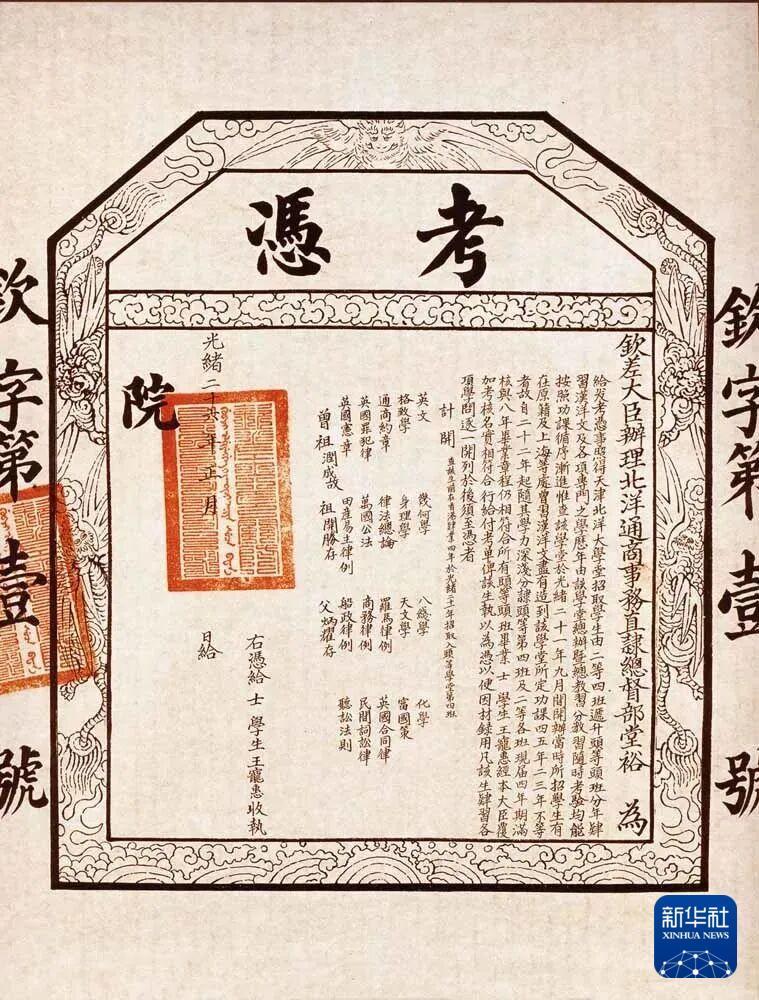 考憑
欽字第壹號
欽差大臣辦理北洋通商事務直隸總督部堂裕 為
給發考憑事照得天津北洋大學堂招取學生由二等四班遞升頭等頭班分年肄
習漢洋文及各項專門之學歷年由該學堂總辦暨總教習分教習隨時考驗均能
按照功課循序漸進惟查該學堂於光緒二十一年九月間開辦當時所招學生有
在原籍及上海等處曾習漢洋文盡有造到該學堂所定功課四五年二三年不等
者故自二十二年起隨其學力深淺分隸頭等第四班及二等各班現届四年期滿
核與八年畢業章程仍相符合所有頭等頭班畢業士 學生王寵惠經本大臣覆
加考核名實相符合行給付考單俾該生執以為憑以便因材錄用凡該生肄習各
項學問逐一開列於後須至憑者
計開 查該生前在香港肄業四年於光緒二十一年招取入頭等學堂第四班
英文 幾何學 八線學 化學
格致學 身理學 天文學 富國策
通商約章 律法總論 羅馬律例 英國合同律
英國罪犯律 萬國公法 商務律例 民間詞訟律
英國憲章 田產易主律例 船政律例 聽訟法則
曾祖潤成故 祖開勝存 父炳耀存
右憑給 士 學生王寵惠收執
光緒二十六年正月 日給
院
欽字第壹號
新华社
XINHUA NEWS